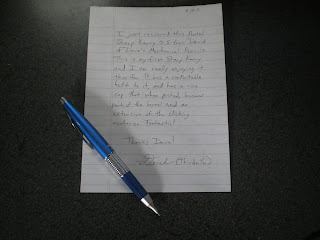 I just received this Pentel
Sharp Kerry
of Dave's Mechanical Pencils.
This is my first Sharp Kerry
and I am really enjoying it
thus far. It has a comfortable
heft to it, and has a nice
cap that when posted, becomes
part of the barrel and an
extension of the clicking
mechanism. Fantastic!
Thanks Dave!